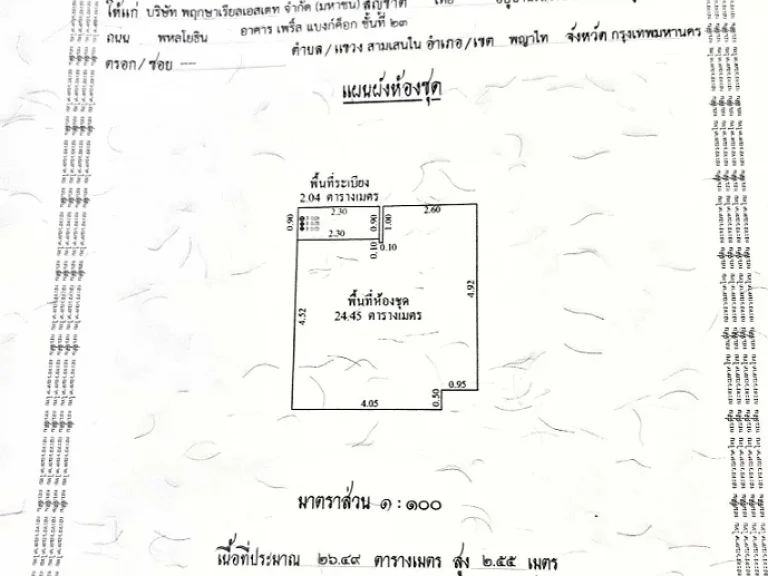 ให้แก่ บริษัท พฤกษาเรียลเอสเตท จำกัด (มหาชน) สัญชาติ ไทย
ถนน พหลโยธิน อาคาร เพิร์ล แบงก์ค็อก ชั้นที่ ๒๓
ตรอก/ซอย -- ตำบล/แขวง สามเสนใน อำเภอ/เขต พญาไท จังหวัด กรุงเทพมหานคร
แผนผังห้องชุด
พื้นที่ระเบียง
2.04 ตารางเมตร
2.30
2.60
0.90
0.90
1.00
2.30
0.10
0.10
พื้นที่ห้องชุด
24.45 ตารางเมตร
4.52
4.92
0.95
0.50
4.05
มาตราส่วน ๑ : ๑๐๐
เนื้อที่ประมาณ ๒๖.๔๙ ตารางเมตร สูง ๒.๕๕ เมตร